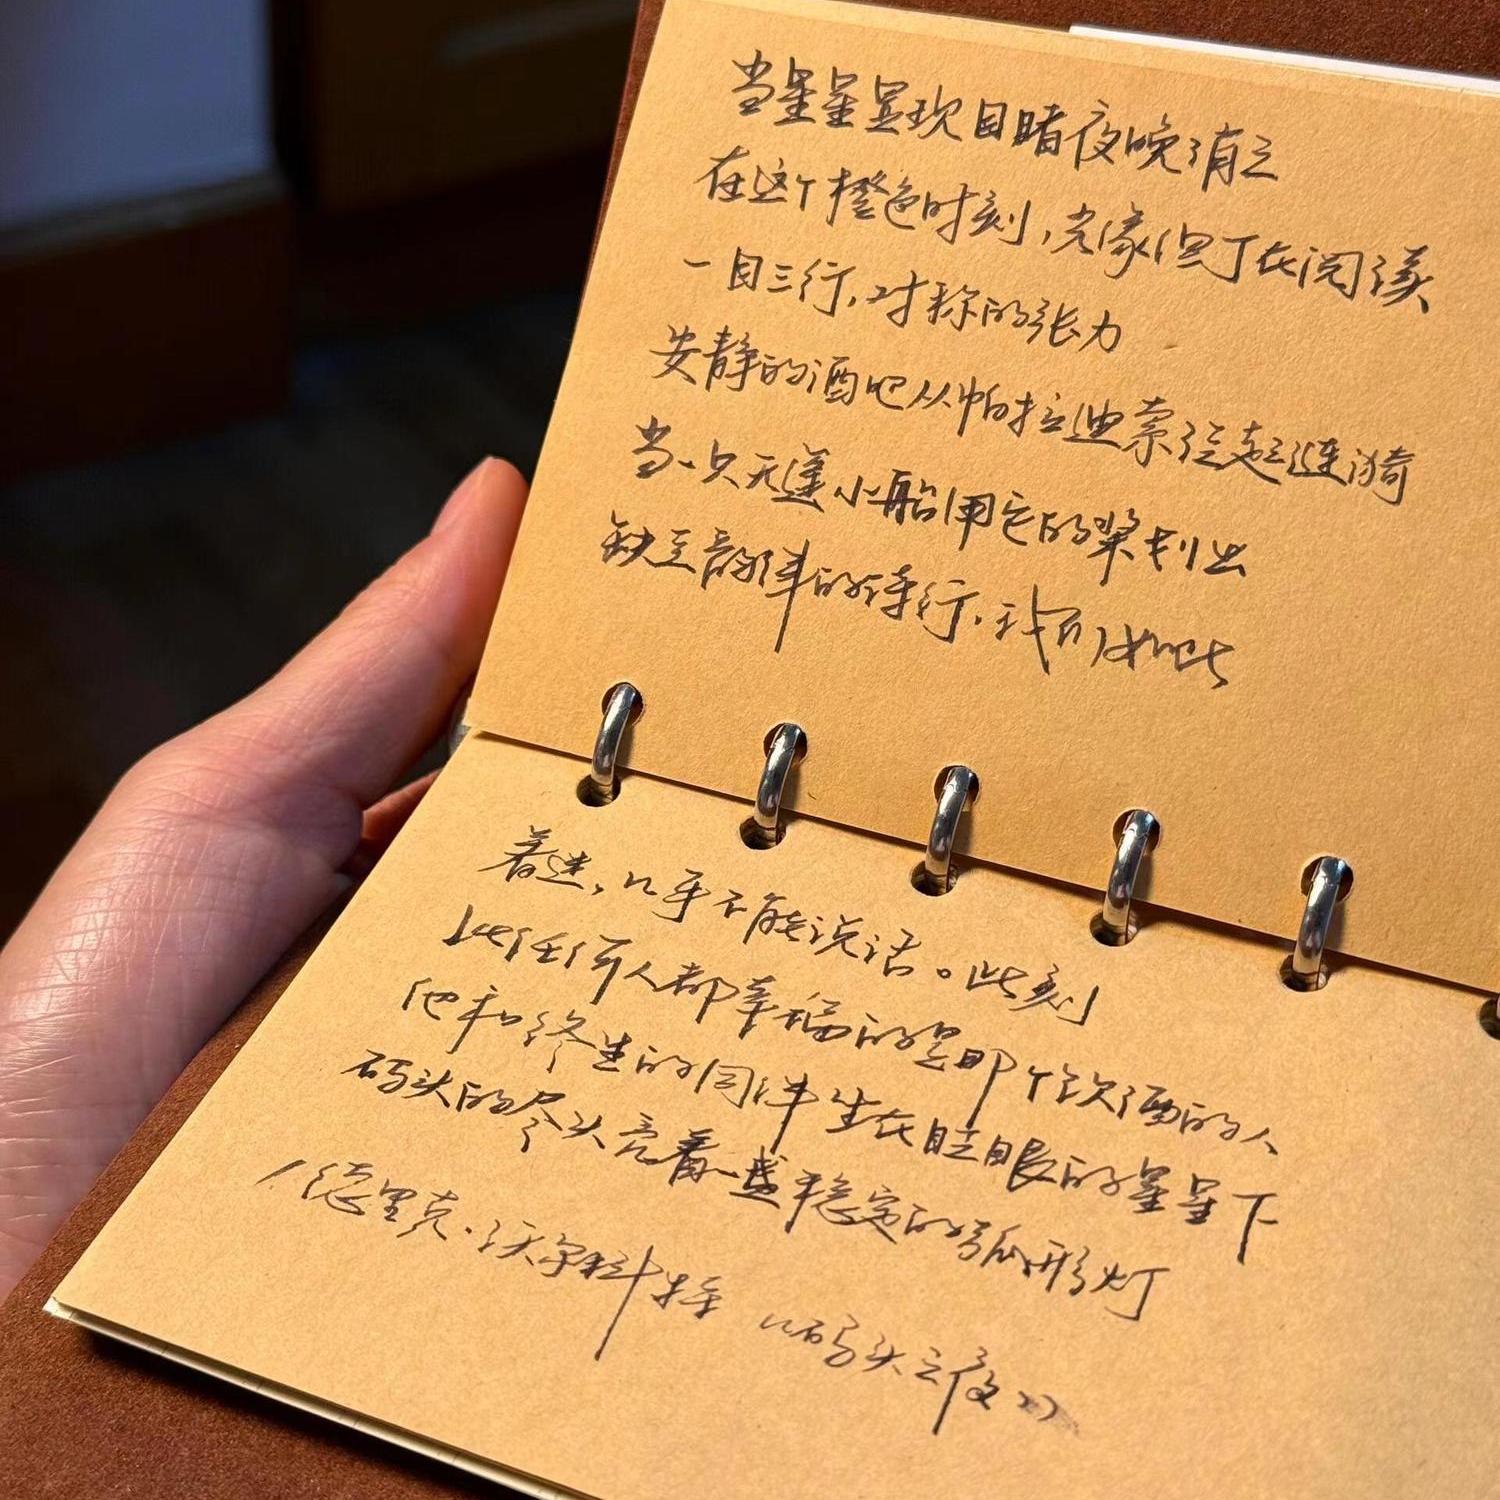 当星星显现目睹夜晚消亡
在这个橙色时刻，光像但丁在阅读
一目三行，对称的张力
安静的酒吧从帕拉迪索泛起涟漪
当一只无篷小船用它的桨划出
缺乏韵律的诗行，我们如此
着迷，几乎不能说话。此刻
比任何人都幸福的是那个饮酒的人
他和终生的同伴坐在眨眼的星星下
码头的尽头亮着一盏稳定的弧形灯
/德里克·沃尔科特 《码头之夜》